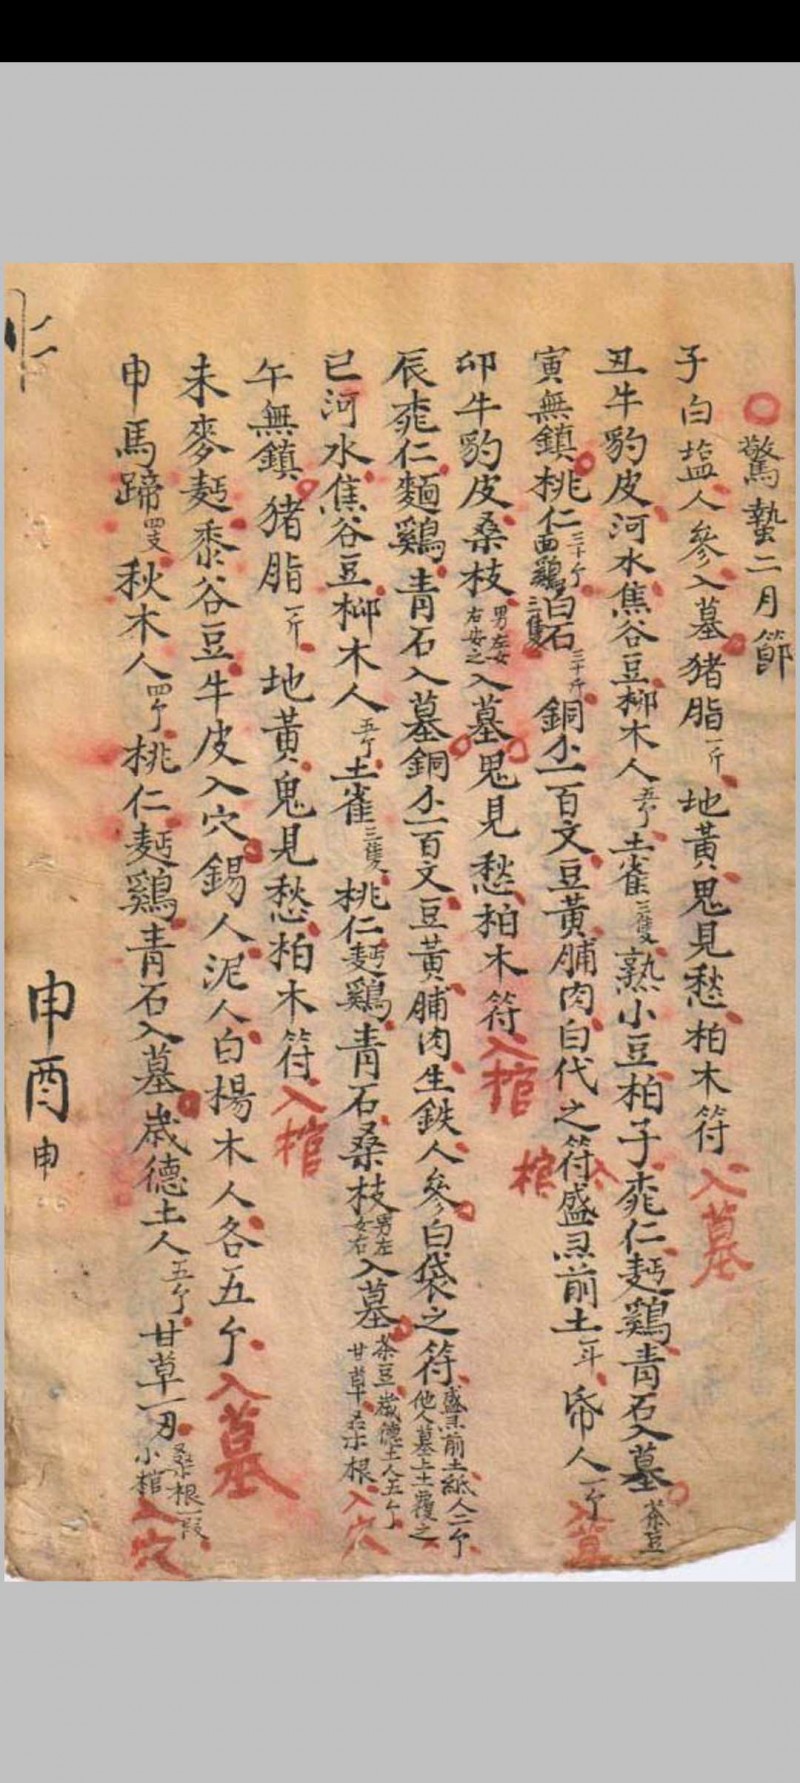 驚蟄二月節
子白塩人參入墓猪脂一斤地黃鬼見愁柏木符入墓
丑牛豹皮河水焦谷豆柳木人五个土雀三隻熟小豆柏子桃仁麪鷄青石入墓茶豆
寅無鎮桃仁三十个面鷄三隻白石三十斤銅仝一百文豆黃脯肉白代之符盛灵前土一斗帋人一个入
入棺
卯牛豹皮桑枝男左女右安之入墓鬼見愁柏木符入棺
辰桃仁麵鷄青石入墓銅仝一百文豆黃脯肉生鉄人參白袋之符盛灵前土紙人二个他人墓上土覆之
巳河水焦谷豆柳木人五个土雀三隻桃仁麪鷄青石桑枝男左女右入墓茶豆歲德土人五个甘草桑根入穴
午無鎮猪脂一斤地黃鬼見愁柏木符入棺
未麥麪黍谷豆牛皮入穴錫人泥人白楊木人各五个入墓
申馬蹄四支秋木人四个桃仁麪鷄青石入墓歲德土人五个甘草一刃桑根一段小棺入穴
申酉申